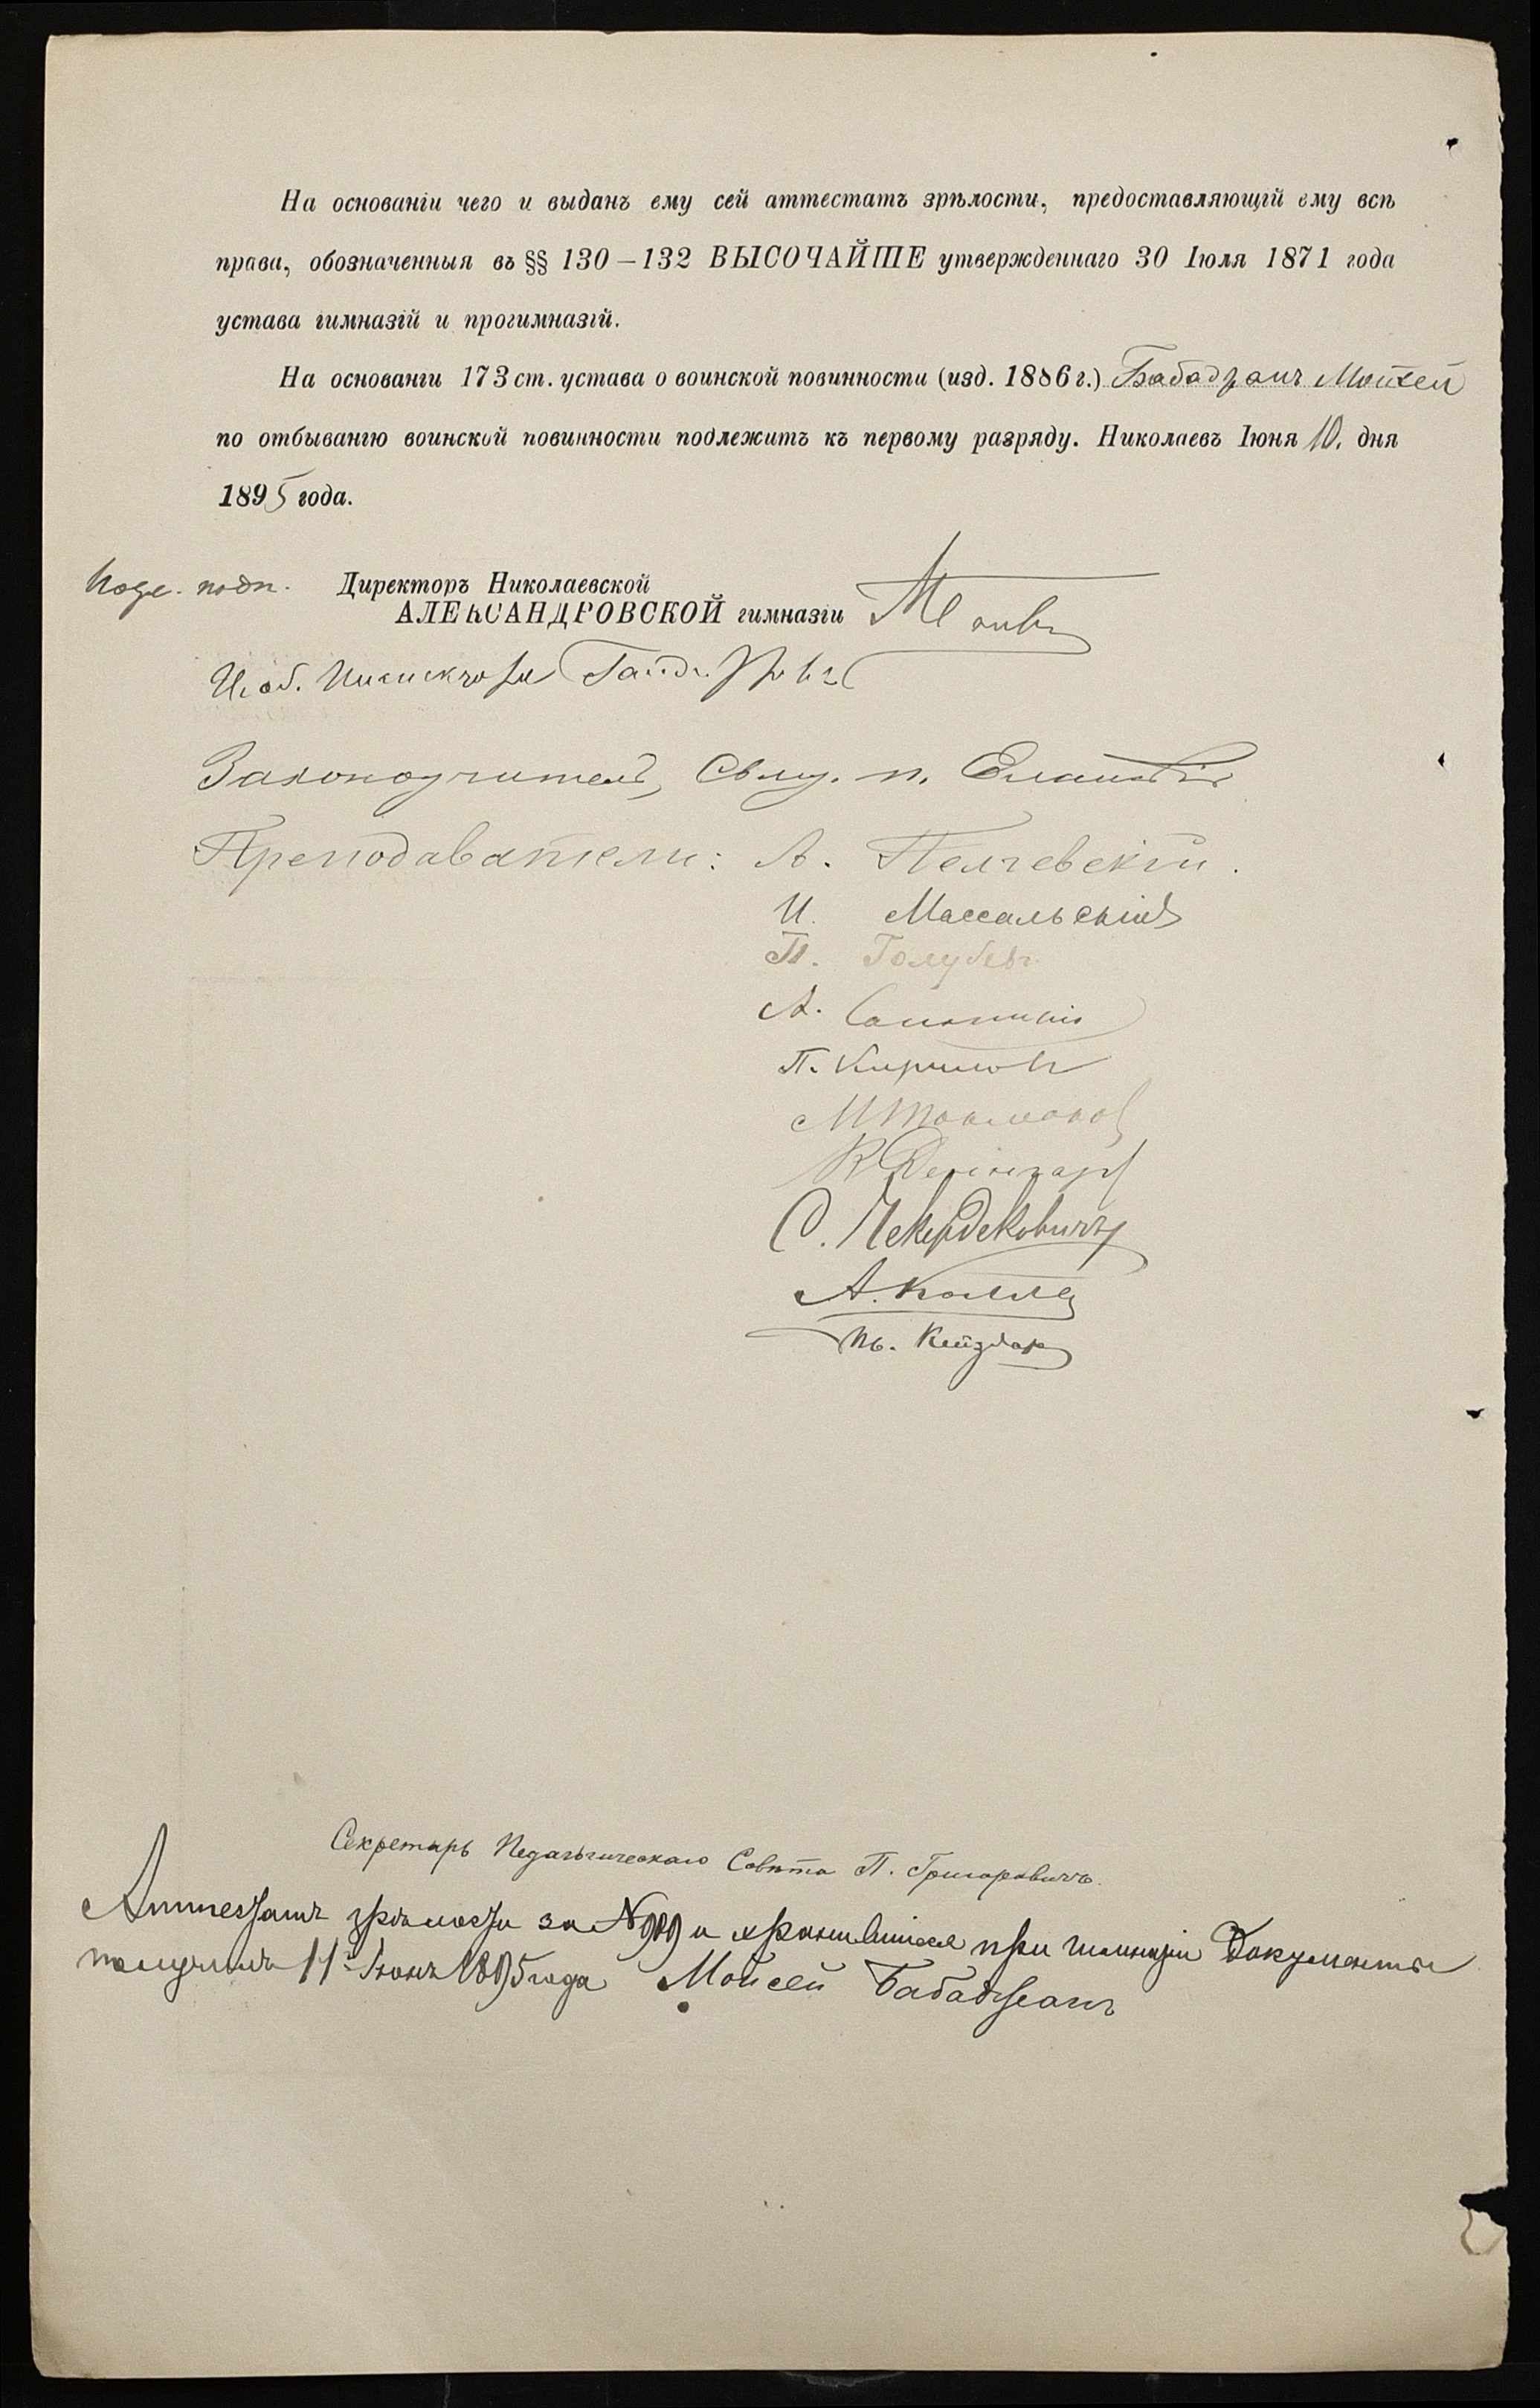 На основаніи чего и выданъ ему сей аттестатъ зрѣлости, предоставляющій ему всѣ
права, обозначенныя въ §§ 130–132 ВЫСОЧАЙШЕ утвержденнаго 30 Іюля 1871 года
устава гимназій и прогимназій.
На основаніи 173 ст. устава о воинской повинности (изд. 1886 г.) Бабаджанъ Мойсей
по отбыванію воинской повинности подлежитъ къ первому разряду. Николаевъ Іюня 10. дня
1895 года.
подп. Директоръ Николаевской
АЛЕКСАНДРОВСКОЙ гимназіи
И. об. Инспектора
Законоучитель, Свящ. п.
Преподаватели: А. Пелчевскій.
И. Массальскій
П. Голубевъ
А.
П. Кирилловъ
М Токмаковъ
С. Чекердековичъ
А. Колле
Секретарь Педагогическаго Совѣта П. Григоровичъ.
Аттестатъ зрѣлости за № 989 и хранившіеся при гимназіи документы
получилъ 11 Іюня 1895 года Мойсей Бабаджанъ